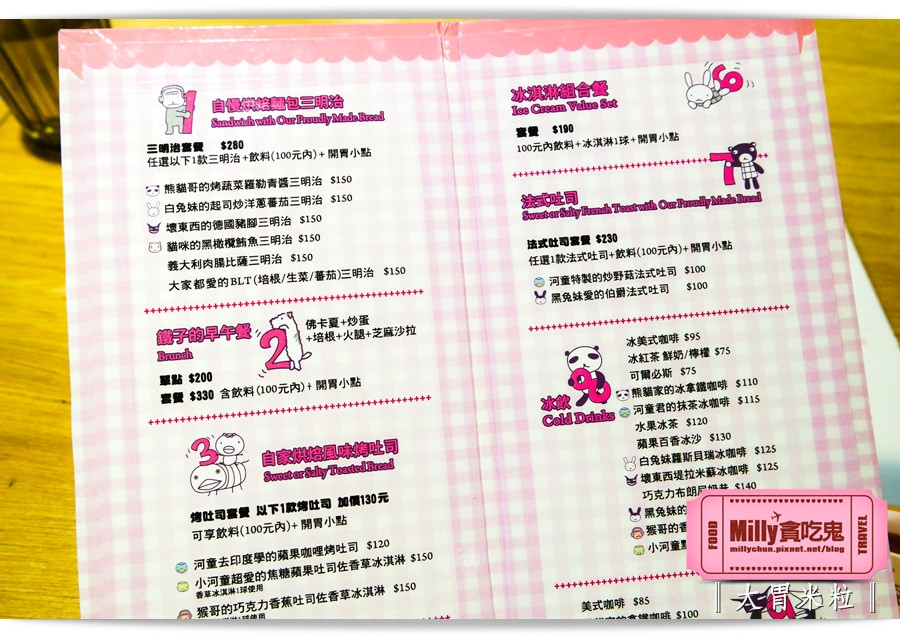 1
自慢烘焙麵包三明治
Sandwich with Our Proudly Made Bread
三明治套餐 $280
任選以下1款三明治+飲料(100元內)+開胃小點
熊貓哥的烤蔬菜羅勒青醬三明治 $150
白兔妹的起司炒洋蔥蕃茄三明治 $150
壞東西的德國豬腳三明治 $150
貓咪的黑橄欖鮪魚三明治 $150
義大利肉腸比薩三明治 $150
大家都愛的BLT(培根/生菜/蕃茄)三明治 $150
鐵子的早午餐
Brunch
2
佛卡夏+炒蛋
+培根+火腿+芝麻沙拉
單點 $200
套餐 $330 含飲料(100元內)+開胃小點
3
自家烘焙風味烤吐司
Sweet or Salty Toasted Bread
烤吐司套餐 以下1款烤吐司 加價130元
可享飲料(100元內)+開胃小點
河童去印度學的蘋果咖哩烤吐司 $120
小河童超愛的焦糖蘋果吐司佐香草冰淇淋 $150
香草冰淇淋1球使用
猴哥的巧克力香蕉吐司佐香草冰淇淋 $150
冰淇淋組合餐
Ice Cream Value Set
6
套餐 $190
100元內飲料+冰淇淋1球+開胃小點
7
法式吐司
Sweet or Salty French Toast with Our Proudly Made Bread
法式吐司套餐 $230
任選1款法式吐司+飲料(100元內)+開胃小點
河童特製的炒野菇法式吐司 $100
黑兔妹愛的伯爵法式吐司 $100
冰飲
Cold Drinks
冰美式咖啡 $95
冰紅茶 鮮奶/檸檬 $75
可爾必斯 $75
熊貓家的冰拿鐵咖啡 $110
河童君的抹茶冰咖啡 $115
水果冰茶 $120
蘋果百香冰沙 $130
白兔妹蘿斯貝瑞冰咖啡 $125
壞東西堤拉米蘇冰咖啡 $125
巧克力布朗尼奶昔 $140
黑兔妹的
猴哥的香
小河童
美式咖啡 $85
$100
FOOD
Milly貪吃鬼
millychun.pixnet.net/blog
TRAVEL
‖大胃米粒‖